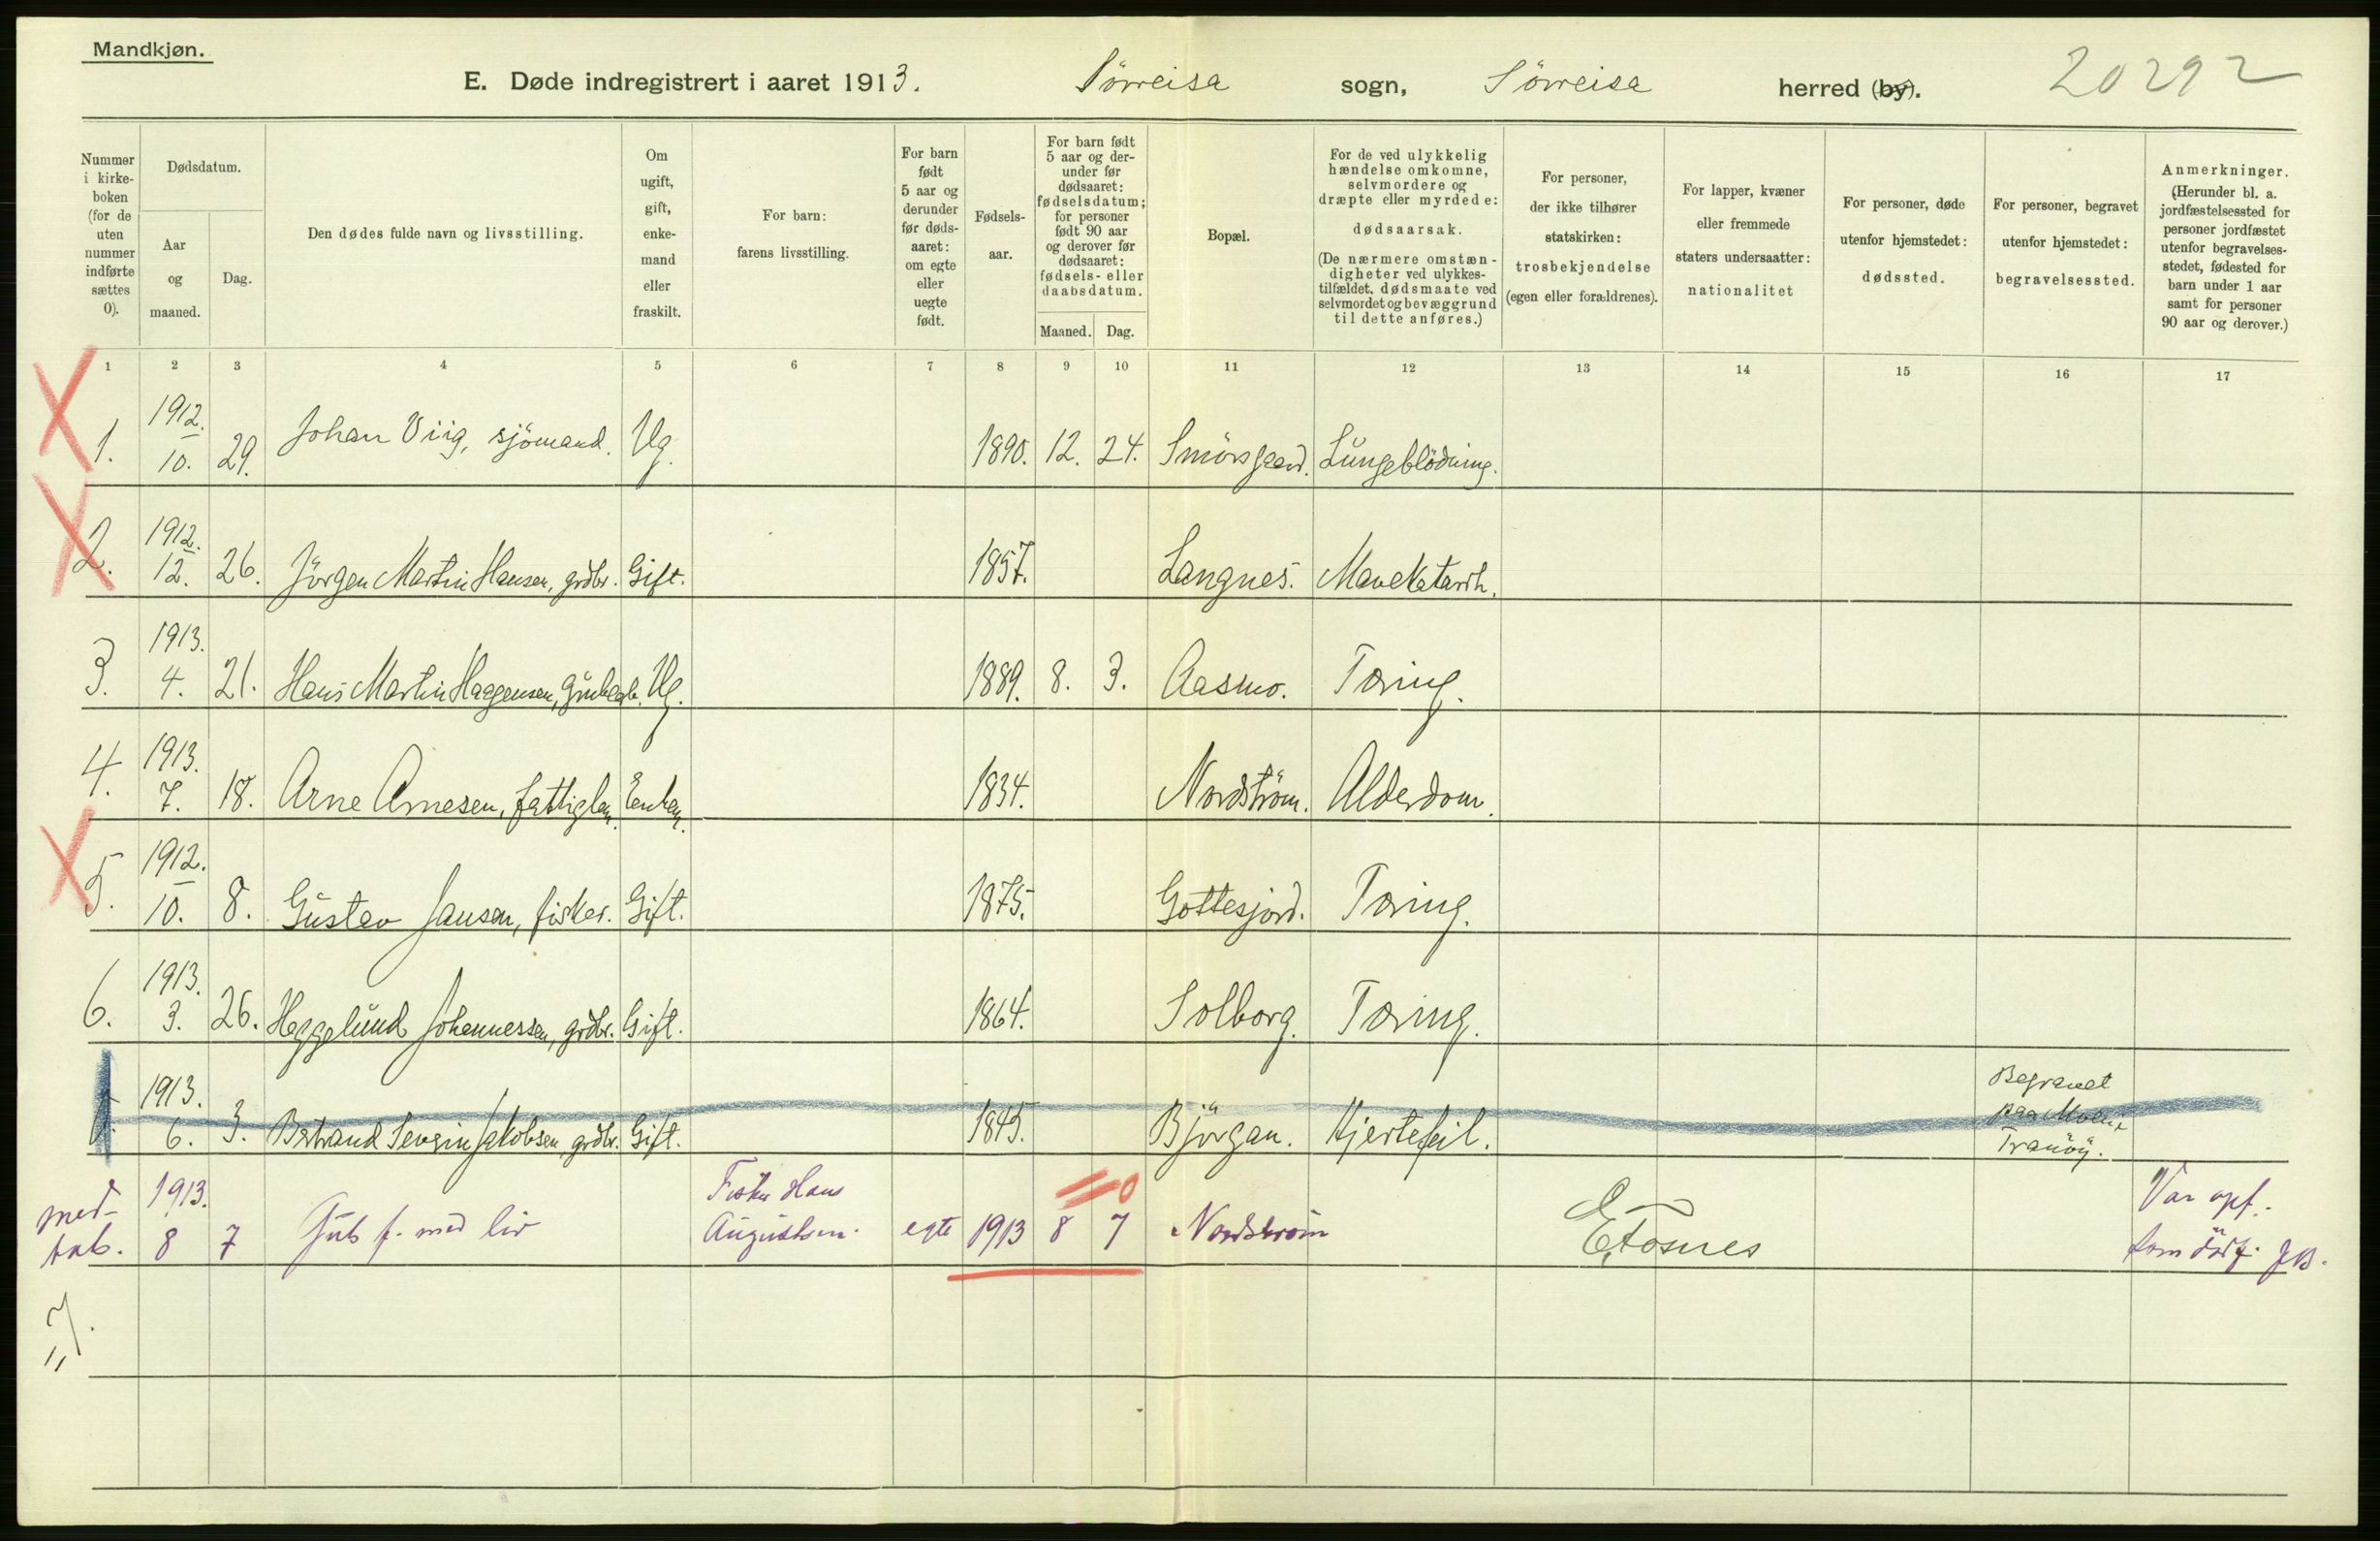 Mandkjøn.
E. Døde indregistrert i aaret 1913. Sörreisa sogn, Sörreisa herred (by). 20292
Nummer i kirkeboken (for de uten nummer indførte sættes 0).
Dødsdatum.
Aar og maaned.
Dag.
Den dødes fulde navn og livsstilling.
Om ugift, gift, enkemand eller fraskilt.
For barn: farens livsstilling.
For barn født 5 aar og derunder før dødsaaret: om egte eller uegte født.
Fødselsaar.
For barn født 5 aar og derunder før dødsaaret: fødselsdatum; for personer født 90 aar og derover før dødsaaret: fødsels- eller daabsdatum.
Maaned. Dag.
Bopæl.
For de ved ulykkelig hændelse omkomne, selvmordere og dræpte eller myrdede: dødsaarsak. (De nærmere omstændigheter ved ulykkestilfældet, dødsmaate ved selvmordet og bevæggrund til dette anføres.)
For personer, der ikke tilhører statskirken: trosbekjendelse (egen eller forældrenes).
For lapper, kvæner eller fremmede staters undersaatter: nationalitet
For personer, døde utenfor hjemstedet: dødssted.
For personer, begravet utenfor hjemstedet: begravelsessted.
Anmerkninger. (Herunder bl. a. jordfæstelsessted for personer jordfæstet utenfor begravelsesstedet, fødested for barn under 1 aar samt for personer 90 aar og derover.)
1 2 3 4 5 6 7 8 9 10 11 12 13 14 15 16 17
1. 1912. 10. 29. Johan Viig, sjömand. Ug. 1890. 12. 24. Smörsgaard. Lungeblödning.
2. 1912. 12. 26. Jörgen Martin Hansen, grdbr. Gift. 1857. Langnes. Mavekatarrh.
3. 1913. 4. 21. Hans Martin Haagensen, Ug. 1889. 8. 3. Aasmo. Tæring.
4. 1913. 7. 18. Arne Arnesen, fattiglem. Enkem. 1834. Nordström. Alderdom.
5. 1912. 10. 8. Gustav Jansen, fisker. Gift. 1875. Gottesjord. Tæring.
6. 1913. 3. 26. Heggelund Johannessen, grdbr. Gift. 1864. Solborg. Tæring.
1913. 6. 3. Bertrand Severin Jakobsen, grdbr. Gift. 1845. Björgan. Hjertefeil. Begravet paa Tranöy.
med. tab. 1913. 8 7 Gut f. med liv Fisker Hans Augustsen. egte 1913 8 7 Nordström Var opf. som dödf.
0
7.